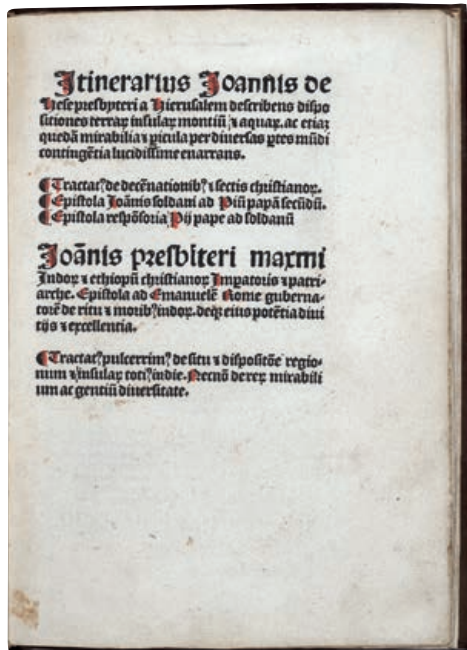 Itinerarius Joannis de
Hese presbyteri a Hierusalem describens dispo
sitiones terraꝝ insulaꝝ montiū ⁊ aquaꝝ. ac etiaꝫ
quedā mirabilia ⁊ ꝑicula per diuersas ꝑtes mūdi
contingētia lucidissime enarrans.
¶ Tractatꝰ de decē nationibꝰ ⁊ sectis christianoꝝ.
¶ Epistola Joānis soldani ad Piū papā secūdū.
¶ Epistola respōsoria Pij pape ad soldanū
Joānis presbiteri maximi
Indoꝝ ⁊ ethiopū christianoꝝ Imꝑatoris ⁊ patri-
arche. Epistola ad Emanuelē Rome guberna-
torē de ritu ⁊ moribꝰ indoꝝ. deqꝫ eius potētia diui
tijs ⁊ excellentia.
¶ Tractatꝰ pulcerrimꝰ de situ ⁊ dispositōe regio-
num ⁊ insulaꝝ totiꝰ indie. Necnō de reꝝ mirabili
um ac gentiū diuersitate.